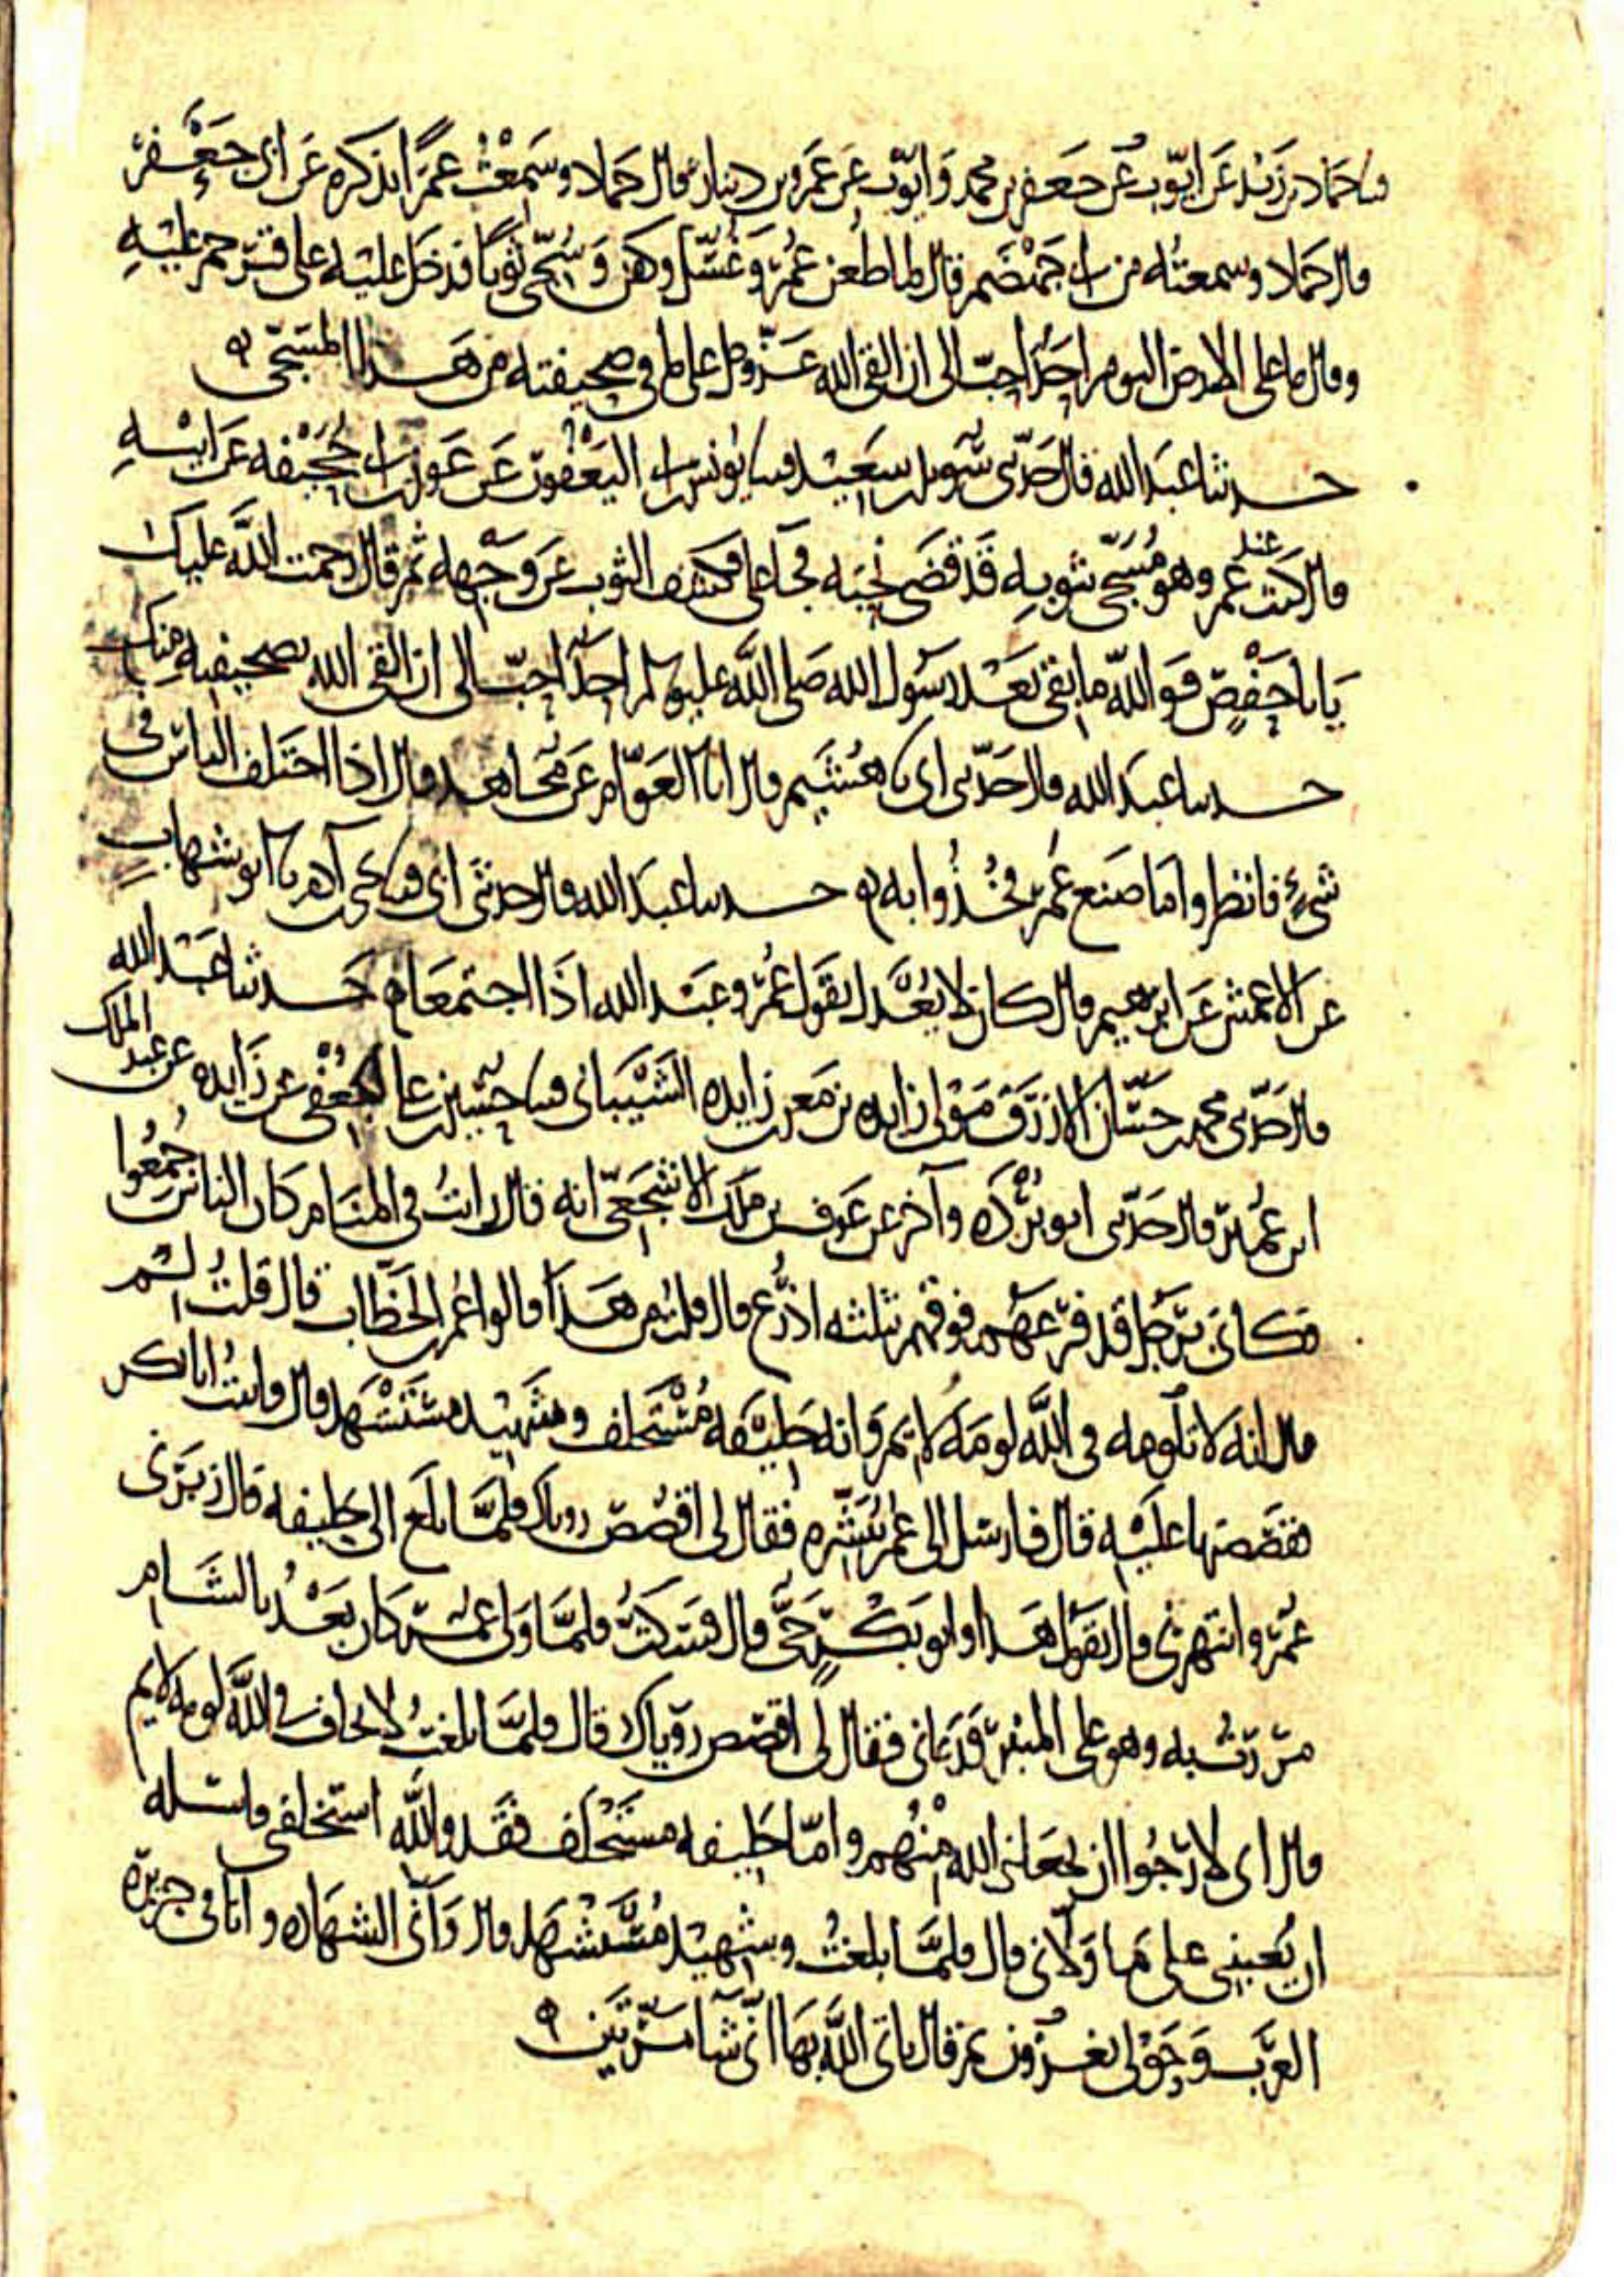 نا حماد بن زيد عن ايوب عن جعفر بن محمد وايوب عن عمرو بن دينار قال حماد وسمعت عمرا يذكره عن ابي جعفر
قال حماد وسمعته من ابي جهضم قال لما طعن عمر وغسل وكفن وسجي ثوبا فدخل عليه علي فترحم عليه
وقال ما على الارض اليوم احد احب الي ان القى الله عز وجل على ما في صحيفته من هذا المسجى
حدثنا عبد الله قال حدثني سويد بن سعيد نا يونس بن ابي اليعفور عن عون بن ابي جحيفة عن ابيه
قال كنت عند عمر وهو مسجى بثوبه قد قضى نحبه فجا علي فكشف الثوب عن وجهه ثم قال رحمت الله عليك
يا با حفص فوالله ما بقي بعد رسول الله صلى الله عليه وسلم احد احب الي ان القى الله بصحيفته منك
حدثنا عبد الله قال حدثني ابي نا هشيم قال انا العوام عن مجاهد قال اذا اختلف الناس في
شيء فانظروا ما صنع عمر فخذوا به حدثنا عبد الله قال حدثني ابي نا يحيى بن آدم نا ابو شهاب
عن الاعمش عن ابرهيم قال كان لا يعدل بقول عمر وعبد الله اذا اجتمعا حدثنا عبد الله
قال حدثني محمد بن حسان الازرق مولى زايده بن معن بن زايده الشيباني نا حسين بن علي الجعفي عن زايده عن عبد الملك
ابن عمير قال حدثني ابو بردة وآخر عن عوف بن ملك الاشجعي انه قال رايت في المنام كان الناس جمعوا
فكاني برجل قد فرعهم فوقهم ثلثه اذرع قال قلت من هذا قالوا عمر بن الخطاب قال قلت لم
قال انه لا تلومه في الله لومة لايم وانه خليفه مستخلف وشهيد مستشهد قال واتيت ابا بكر
فقصصتها عليه قال فارسل الى عمر يبشره فقال لي اقصص روياك فلما بلغ الى خليفه قال زبرني
عمر وانتهرني قال تقول هذا وابو بكر حي قال فسكت فلما ولي عمر كان بعد بالشام
مررت به وهو على المنبر فدعاني فقال لي اقصص روياك قال فلما بلغت لا يخاف في الله لومه لايم
قال اي لارجوا ان يجعلني الله منهم واما خليفه مستخلف فقد والله استخلفني فاسله
ان يعينني على ما ولاني قال فلما بلغت وشهيد مستشهد قال واني الشهاده وانا في جزيرة
العرب وحولي يغزون ثم قال ياتي الله بها انى شا مرتين